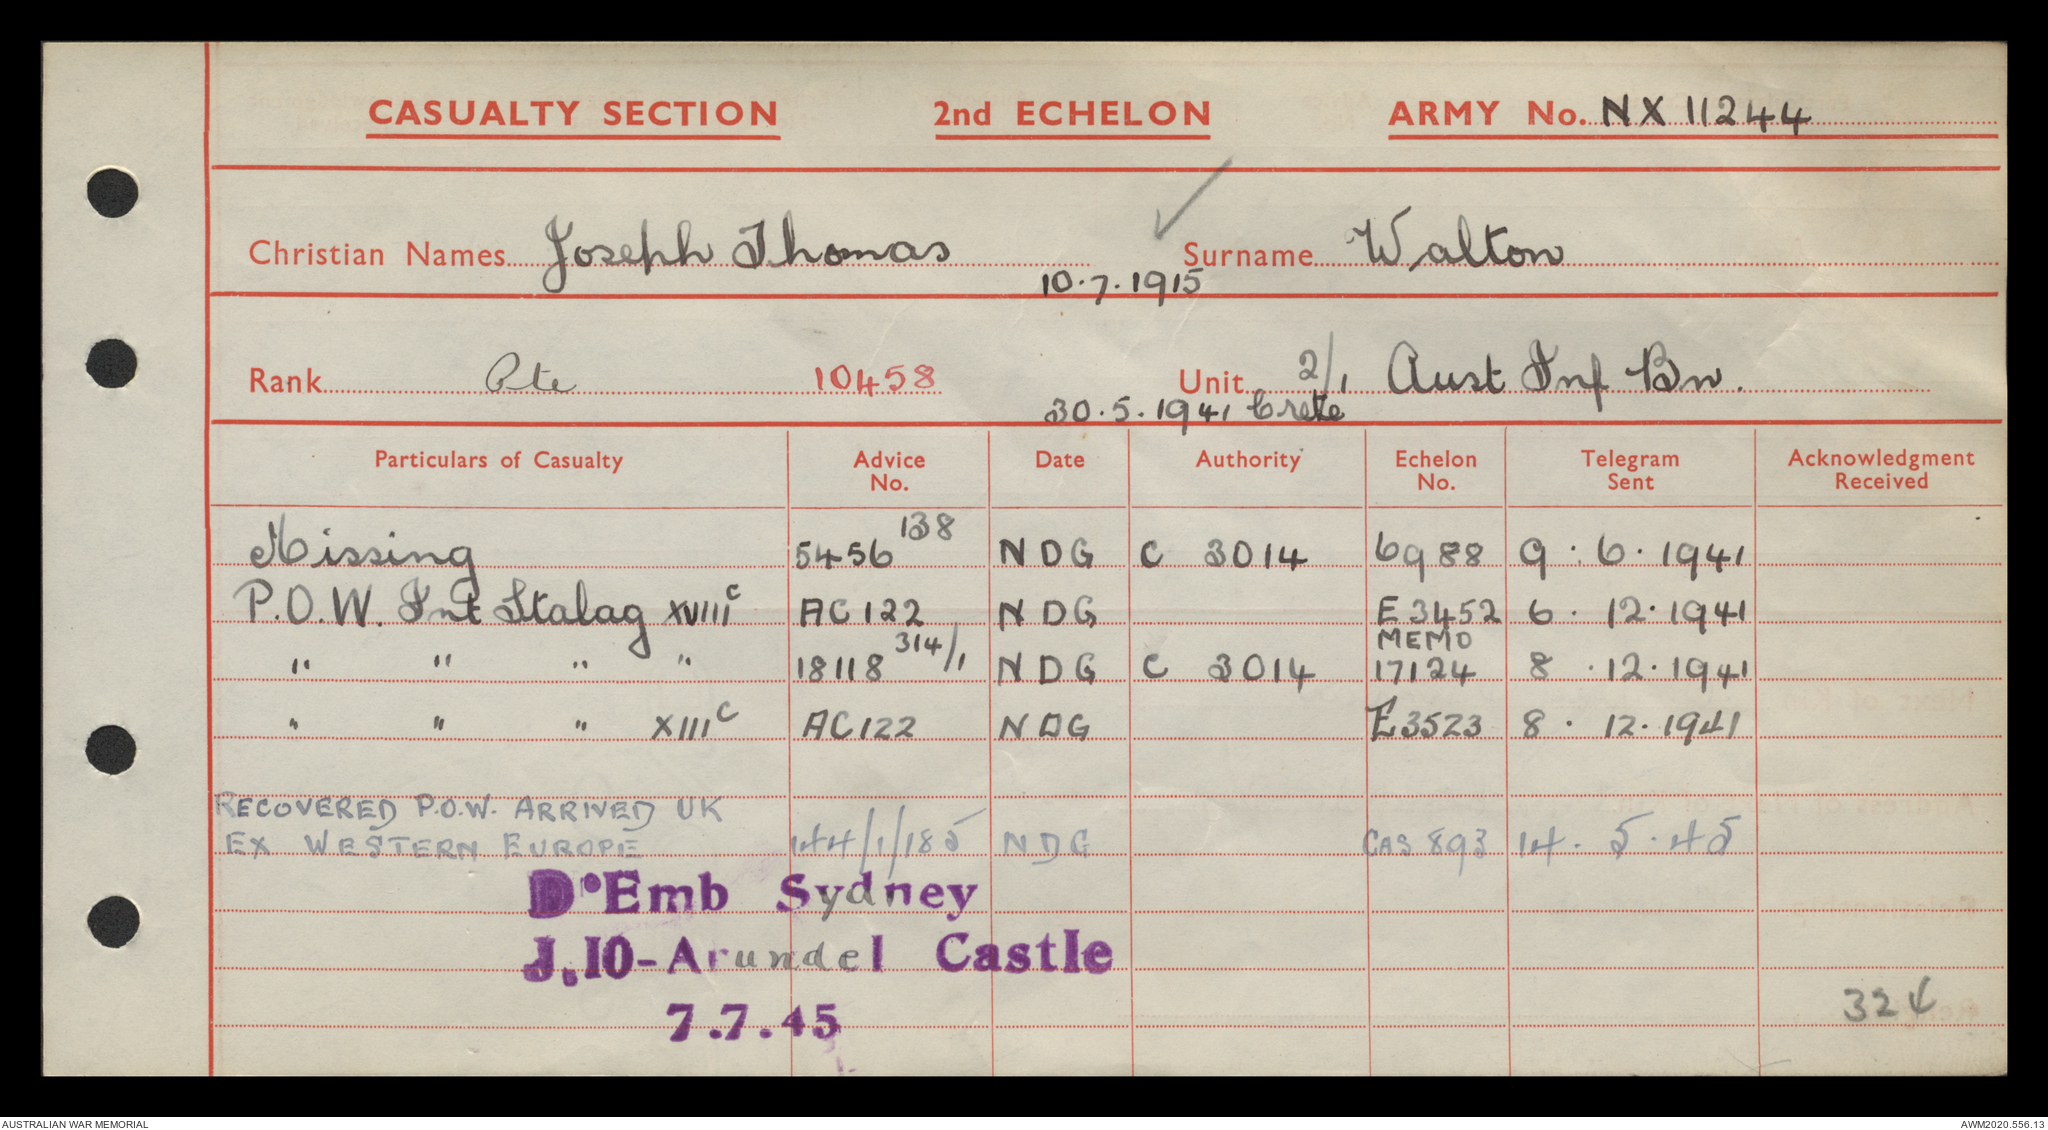 CASUALTY SECTION 2nd ECHELON ARMY No. NX 11244
Christian Names Joseph Thomas Surname Walton
10.7.1915
Rank Pte 10458 Unit 2/1 Aust Inf Bn.
30.5.1941 Crete
Particulars of Casualty Advice No. Date Authority Echelon No. Telegram Sent Acknowledgment Received
Missing 5456 138 NDG C 3014 6988 9.6.1941
P.O.W. Int Stalag XVIII C AC 122 NDG E 3452 6.12.1941
" " " " 18118 314/1 NDG C 3014 MEMO 17124 8.12.1941
" " " XIII C AC 122 NDG E3523 8.12.1941
RECOVERED P.O.W. ARRIVED UK
EX WESTERN EUROPE 144/1/185 NDG CAS 893 14.5.45
D'Emb Sydney
J.10-Arundel Castle
324
7.7.45
AUSTRALIAN WAR MEMORIAL AWM2020.556.13